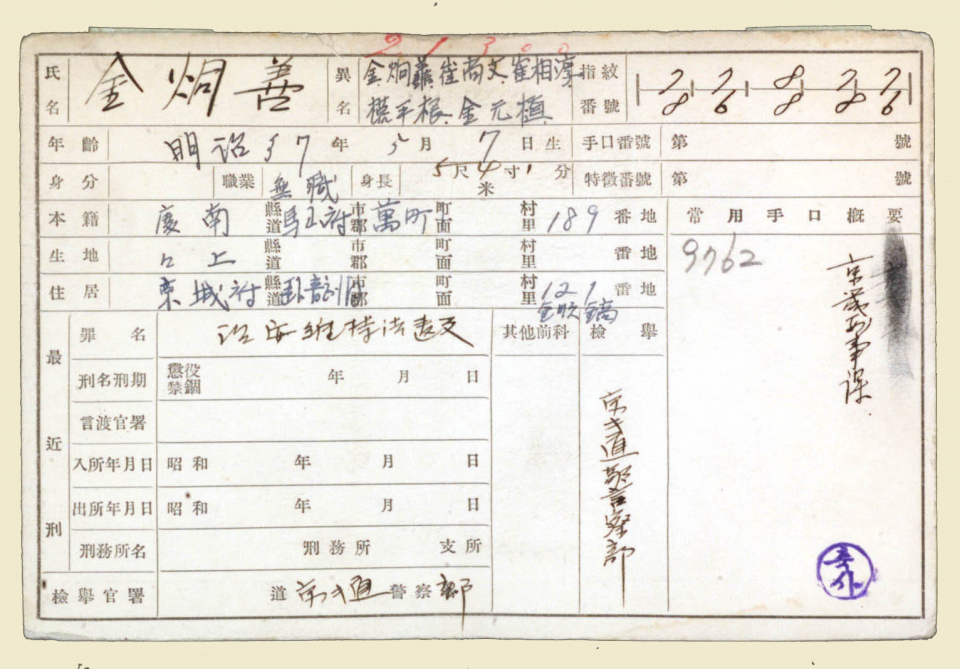 21300
氏名 金炯善 異名 金炯善 崔尚文 崔相淳 金元植 指紋番號 78 76 88 78 76
年齡 明治37年5月7日生 手口番號 第 號
身分 職業 無職 身長 5尺4寸1分 米 特徵番號 第 號
本籍 慶南 縣道 馬山府 市郡 萬町 町面 村里 189番地 常用手口概要
生地 仝上 縣道 市郡 町面 村里 番地 9762
住居 京城府 縣道 市郡 町面 村里 121番地
最近刑
罪名 治安維持法違反 其他前科 檢擧
刑名刑期 懲役 禁錮 年 月 日
言渡官署
入所年月日 昭和 年 月 日
出所年月日 昭和 年 月 日
刑務所名 刑務所 支所
檢擧官署 道 京キ道 警察部
京キ道警察部
京畿刑事課